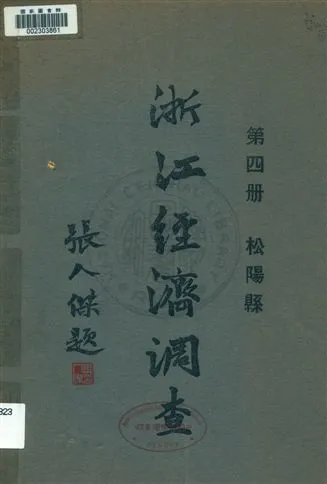 國家圖書館
002303861
第四册　松陽縣
浙江經濟調查
張人傑題
823